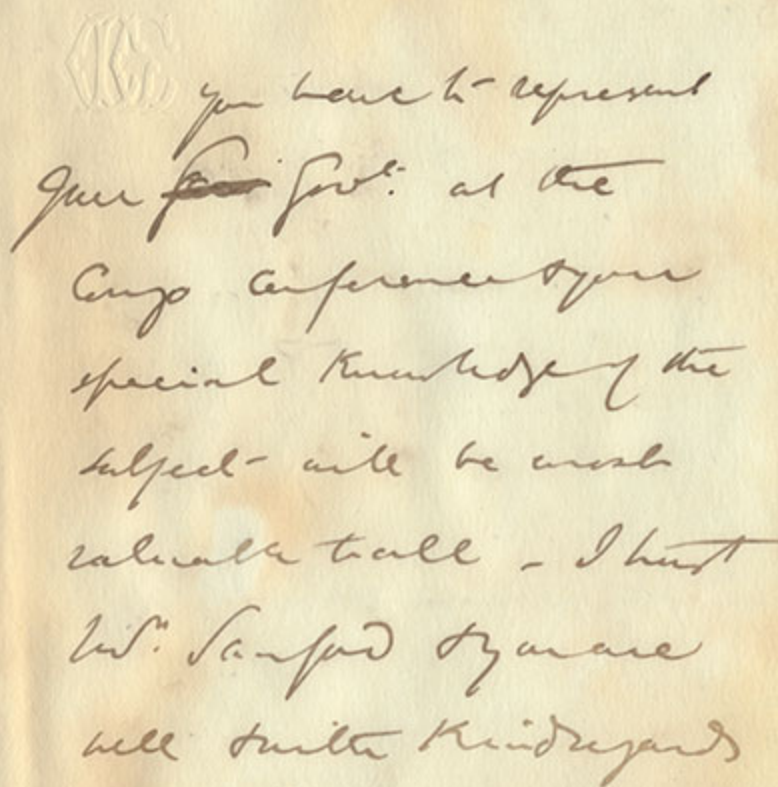 you have to represent
your Govt. at the
Congo Conference & your
special Knowledge of the
subject will be most
valuable to all – I trust
Mrs. Sanford & you are
well & with Kind regards